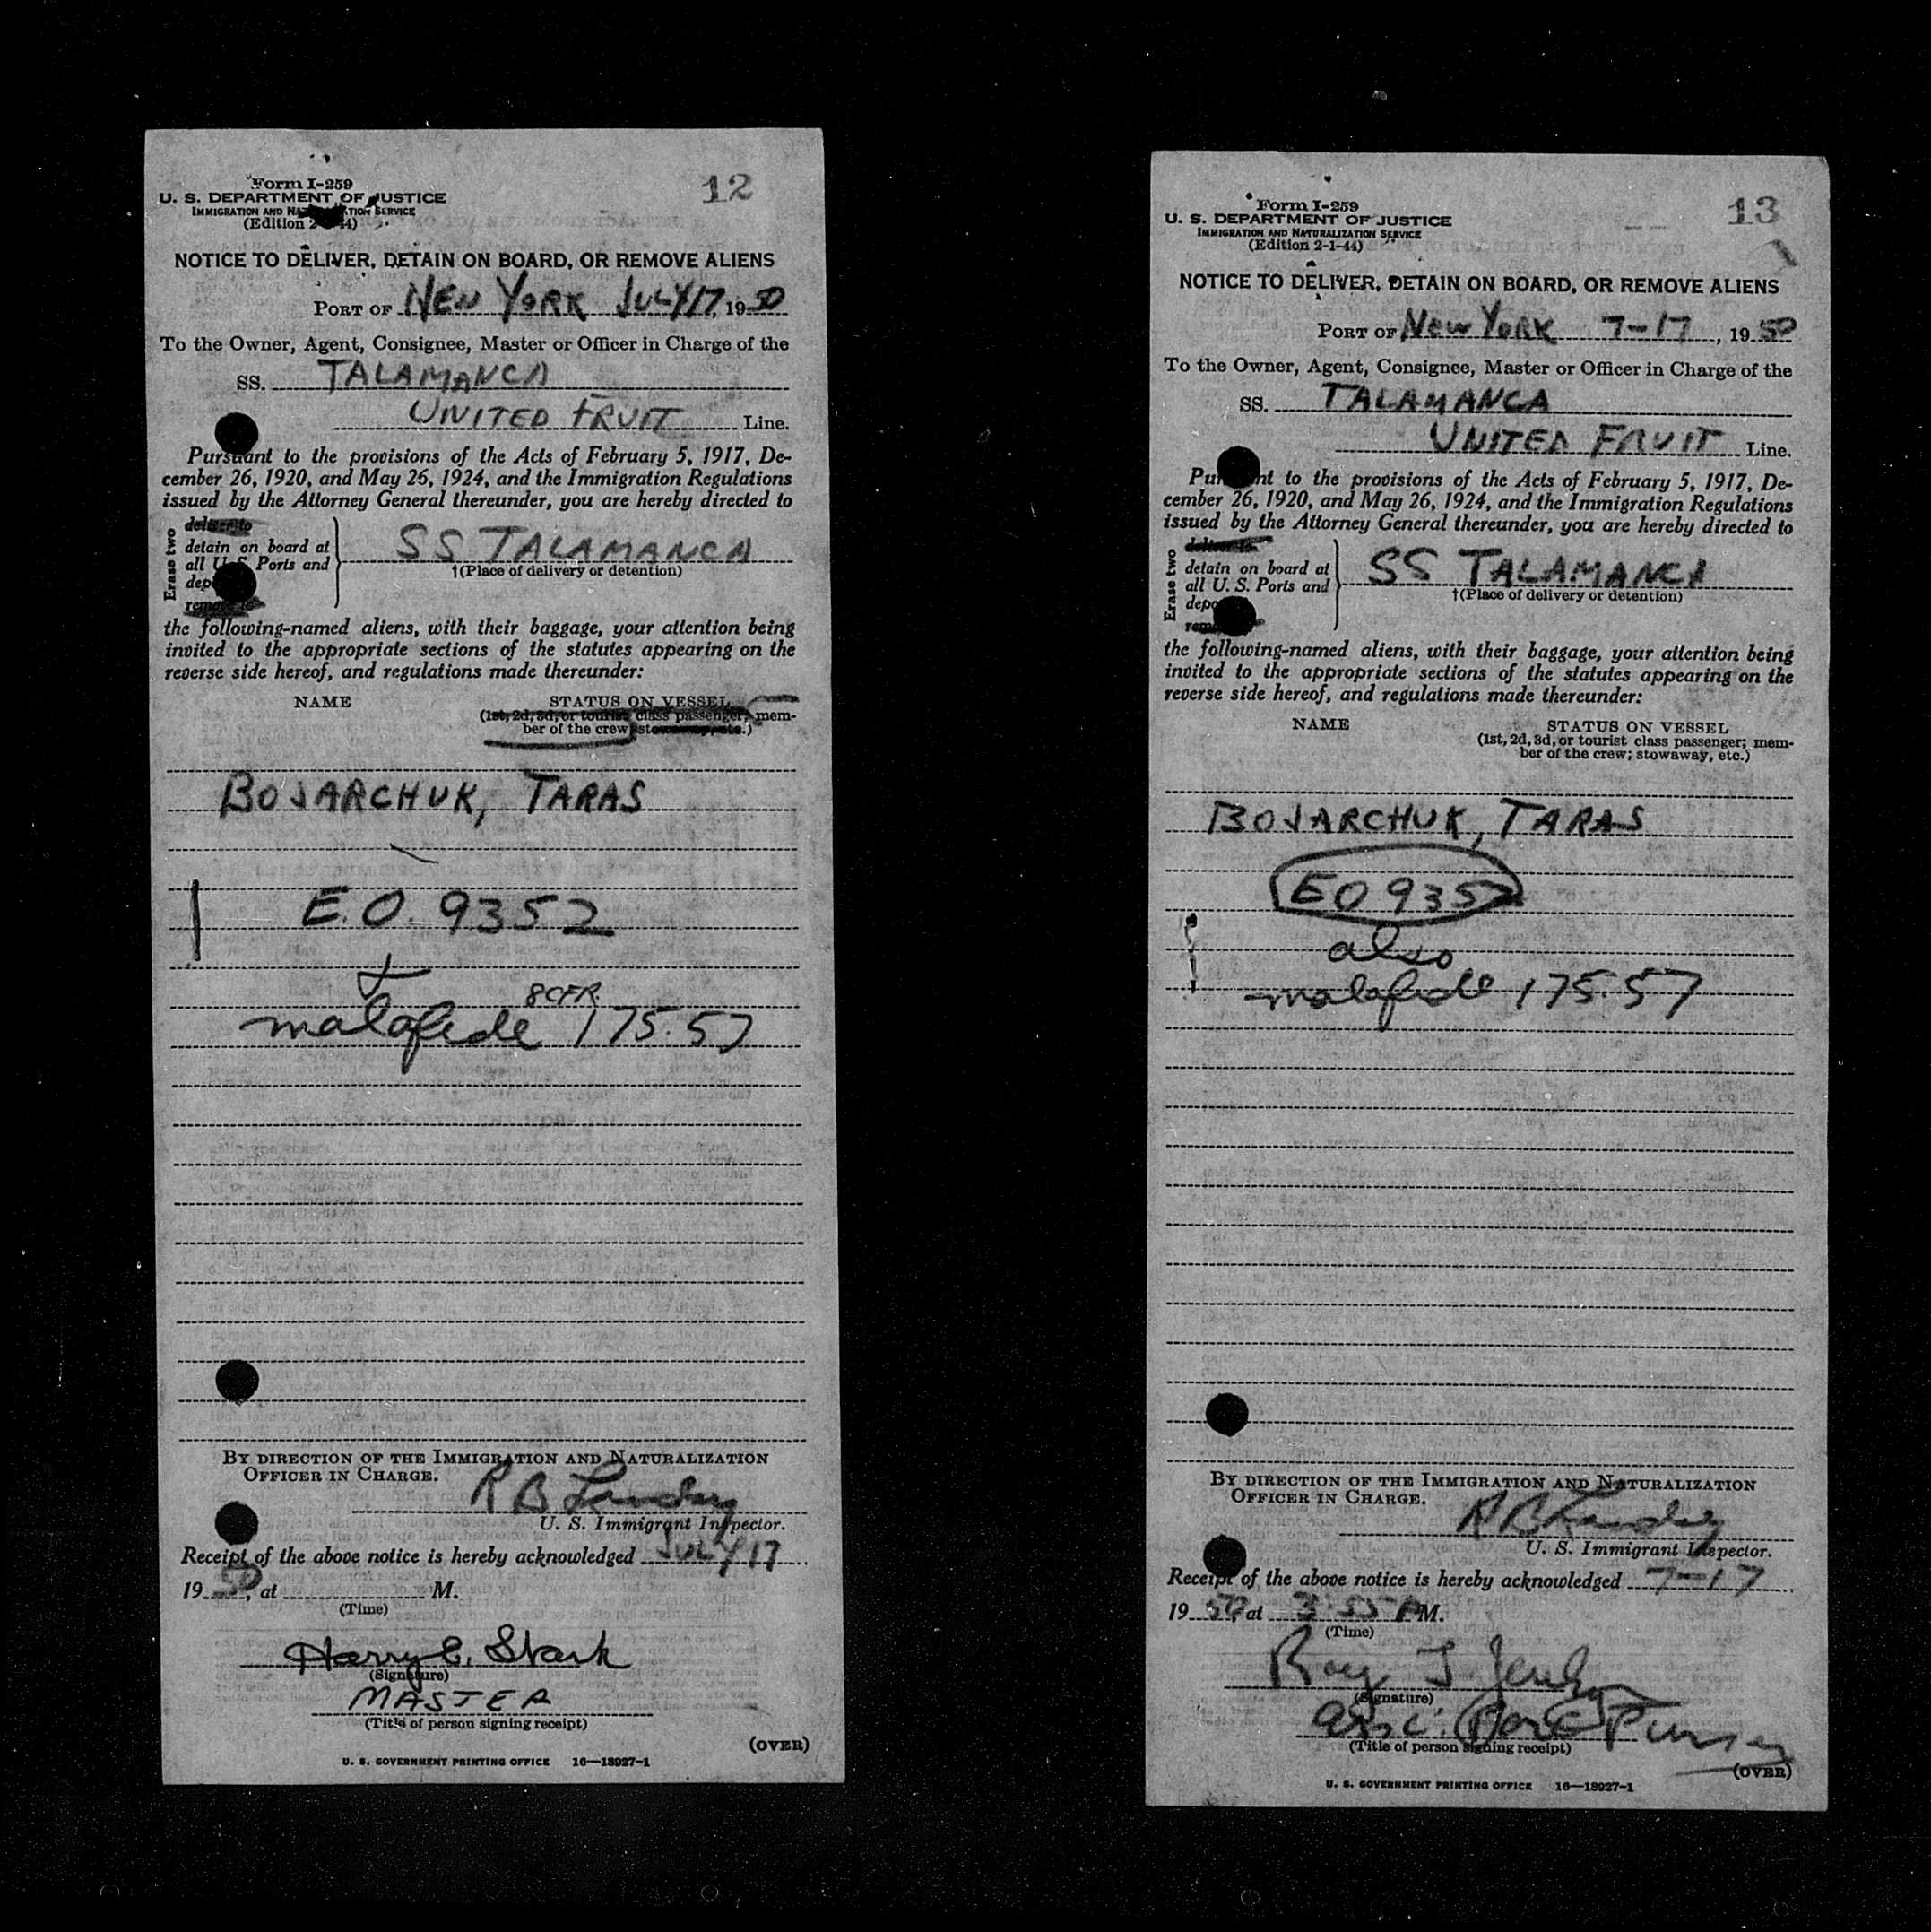 12
Form I-259
U. S. DEPARTMENT OF JUSTICE
IMMIGRATION AND NATURALIZATION SERVICE
(Edition 2-1-44)
NOTICE TO DELIVER, DETAIN ON BOARD, OR REMOVE ALIENS
PORT OF NEW YORK JULY 17, 1950
To the Owner, Agent, Consignee, Master or Officer in Charge of the
SS. TALAMANCA
UNITED FRUIT Line.
Pursuant to the provisions of the Acts of February 5, 1917, De-
cember 26, 1920, and May 26, 1924, and the Immigration Regulations
issued by the Attorney General thereunder, you are hereby directed to
Erase two
deliver to
detain on board at
all U. S. Ports and
deport
remove to
SS TALAMANCA
†(Place of delivery or detention)
the following-named aliens, with their baggage, your attention being
invited to the appropriate sections of the statutes appearing on the
reverse side hereof, and regulations made thereunder:
NAME STATUS ON VESSEL
(1st, 2d, 3d, or tourist class passenger; mem-
ber of the crew; stowaway, etc.)
BOJARCHUK, TARAS
E.O. 9352
+
8CFR
malafide 175.57
BY DIRECTION OF THE IMMIGRATION AND NATURALIZATION
OFFICER IN CHARGE.
R B
U. S. Immigrant Inspector.
Receipt of the above notice is hereby acknowledged JULY 17
1950, at M.
(Time)
Harry E. Stark
(Signature)
MASTER
(Title of person signing receipt)
(OVER)
U. S. GOVERNMENT PRINTING OFFICE 16—18927-1
13
Form I-259
U. S. DEPARTMENT OF JUSTICE
IMMIGRATION AND NATURALIZATION SERVICE
(Edition 2-1-44)
NOTICE TO DELIVER, DETAIN ON BOARD, OR REMOVE ALIENS
PORT OF New YORK 7-17, 1950
To the Owner, Agent, Consignee, Master or Officer in Charge of the
SS. TALAMANCA
UNITED FRUIT Line.
Pursuant to the provisions of the Acts of February 5, 1917, De-
cember 26, 1920, and May 26, 1924, and the Immigration Regulations
issued by the Attorney General thereunder, you are hereby directed to
Erase two
deliver to
detain on board at
all U. S. Ports and
deport
remove to
SS TALAMANCA
†(Place of delivery or detention)
the following-named aliens, with their baggage, your attention being
invited to the appropriate sections of the statutes appearing on the
reverse side hereof, and regulations made thereunder:
NAME STATUS ON VESSEL
(1st, 2d, 3d, or tourist class passenger; mem-
ber of the crew; stowaway, etc.)
BOJARCHUK, TARAS
EO 9352
also
malafide 175.57
BY DIRECTION OF THE IMMIGRATION AND NATURALIZATION
OFFICER IN CHARGE.
R B
U. S. Immigrant Inspector.
Receipt of the above notice is hereby acknowledged 7-17
1950, at 3:55 PM.
(Time)
Roy J.
(Signature)
Port Purser
(Title of person signing receipt)
(OVER)
U. S. GOVERNMENT PRINTING OFFICE 16—18927-1